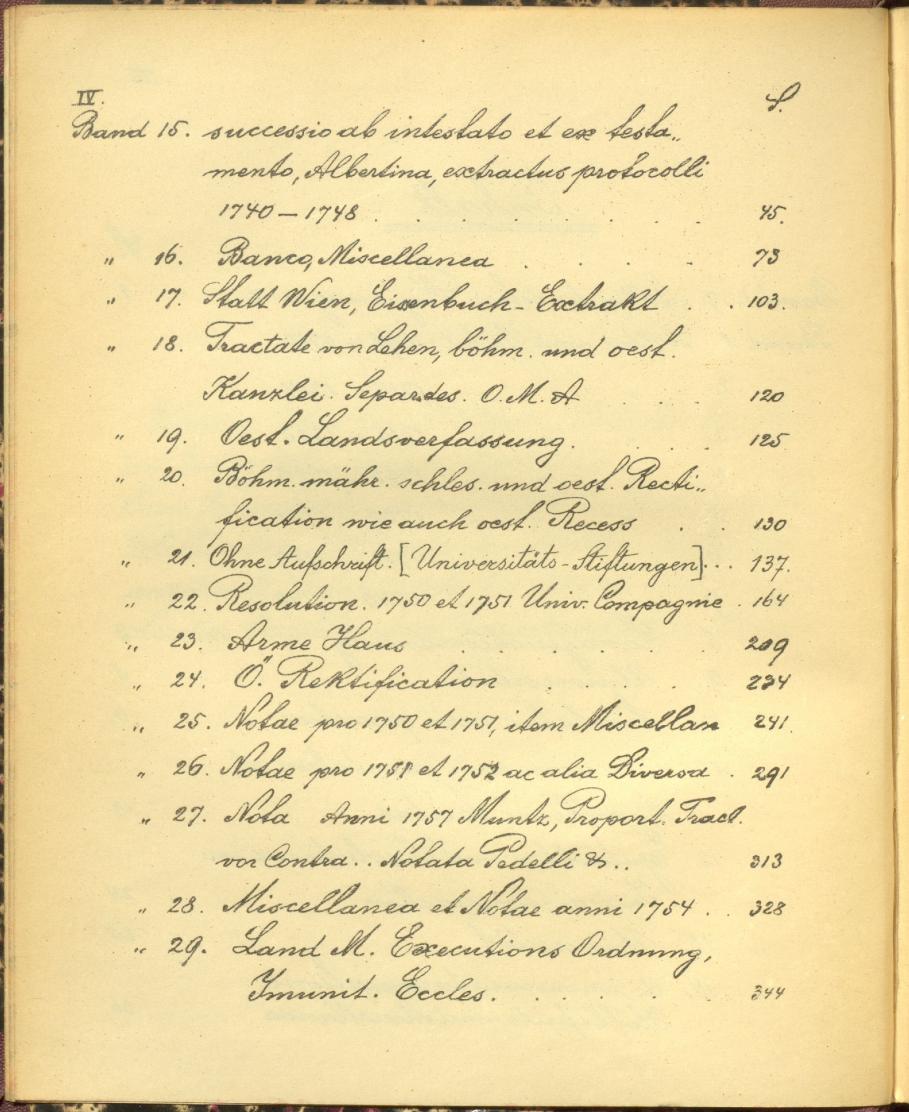 IV. S.
Band 15. successio ab intestato et ex testa„
mento, Albertina, extractus protocolli
1740 – 1748 . . . . . . . . . 45.
„ 16. Banco, Miscellanea . . . . . 73
„ 17. Statt Wien, Eisenbuch - Extrakt . . 103.
„ 18. Tractate von Lehen, böhm. und oest.
Kanzlei. Separdes. O. M. A . . . 120
„ 19. Oest. Landsverfassung. . . . 125
„ 20. Böhm. mähr. schles. und oest. Recti„
fication wie auch oest. Recess . . 130
„ 21. Ohne Aufschrift. [Universitäts - Stiftungen] . . . 137.
„ 22. Resolution. 1750 et 1751 Univ. Compagnie . 164
„ 23. Arme Haus . . . . . . 209
„ 24. Ö. Rektification . . . . . 234
„ 25. Notae pro 1750 et 1751, item Miscellan 241.
„ 26. Notae pro 1751 et 1752 ac alia Diversa . 291
„ 27. Nota Anni 1757 Muntz, Proport. Tract.
von Contra . . Notata Pedelli & . . 313
„ 28. Miscellanea et Notae anni 1754 . . 328
„ 29. Land M. Executions Ordnung,
Imunit. Eccles. . . . . . 344